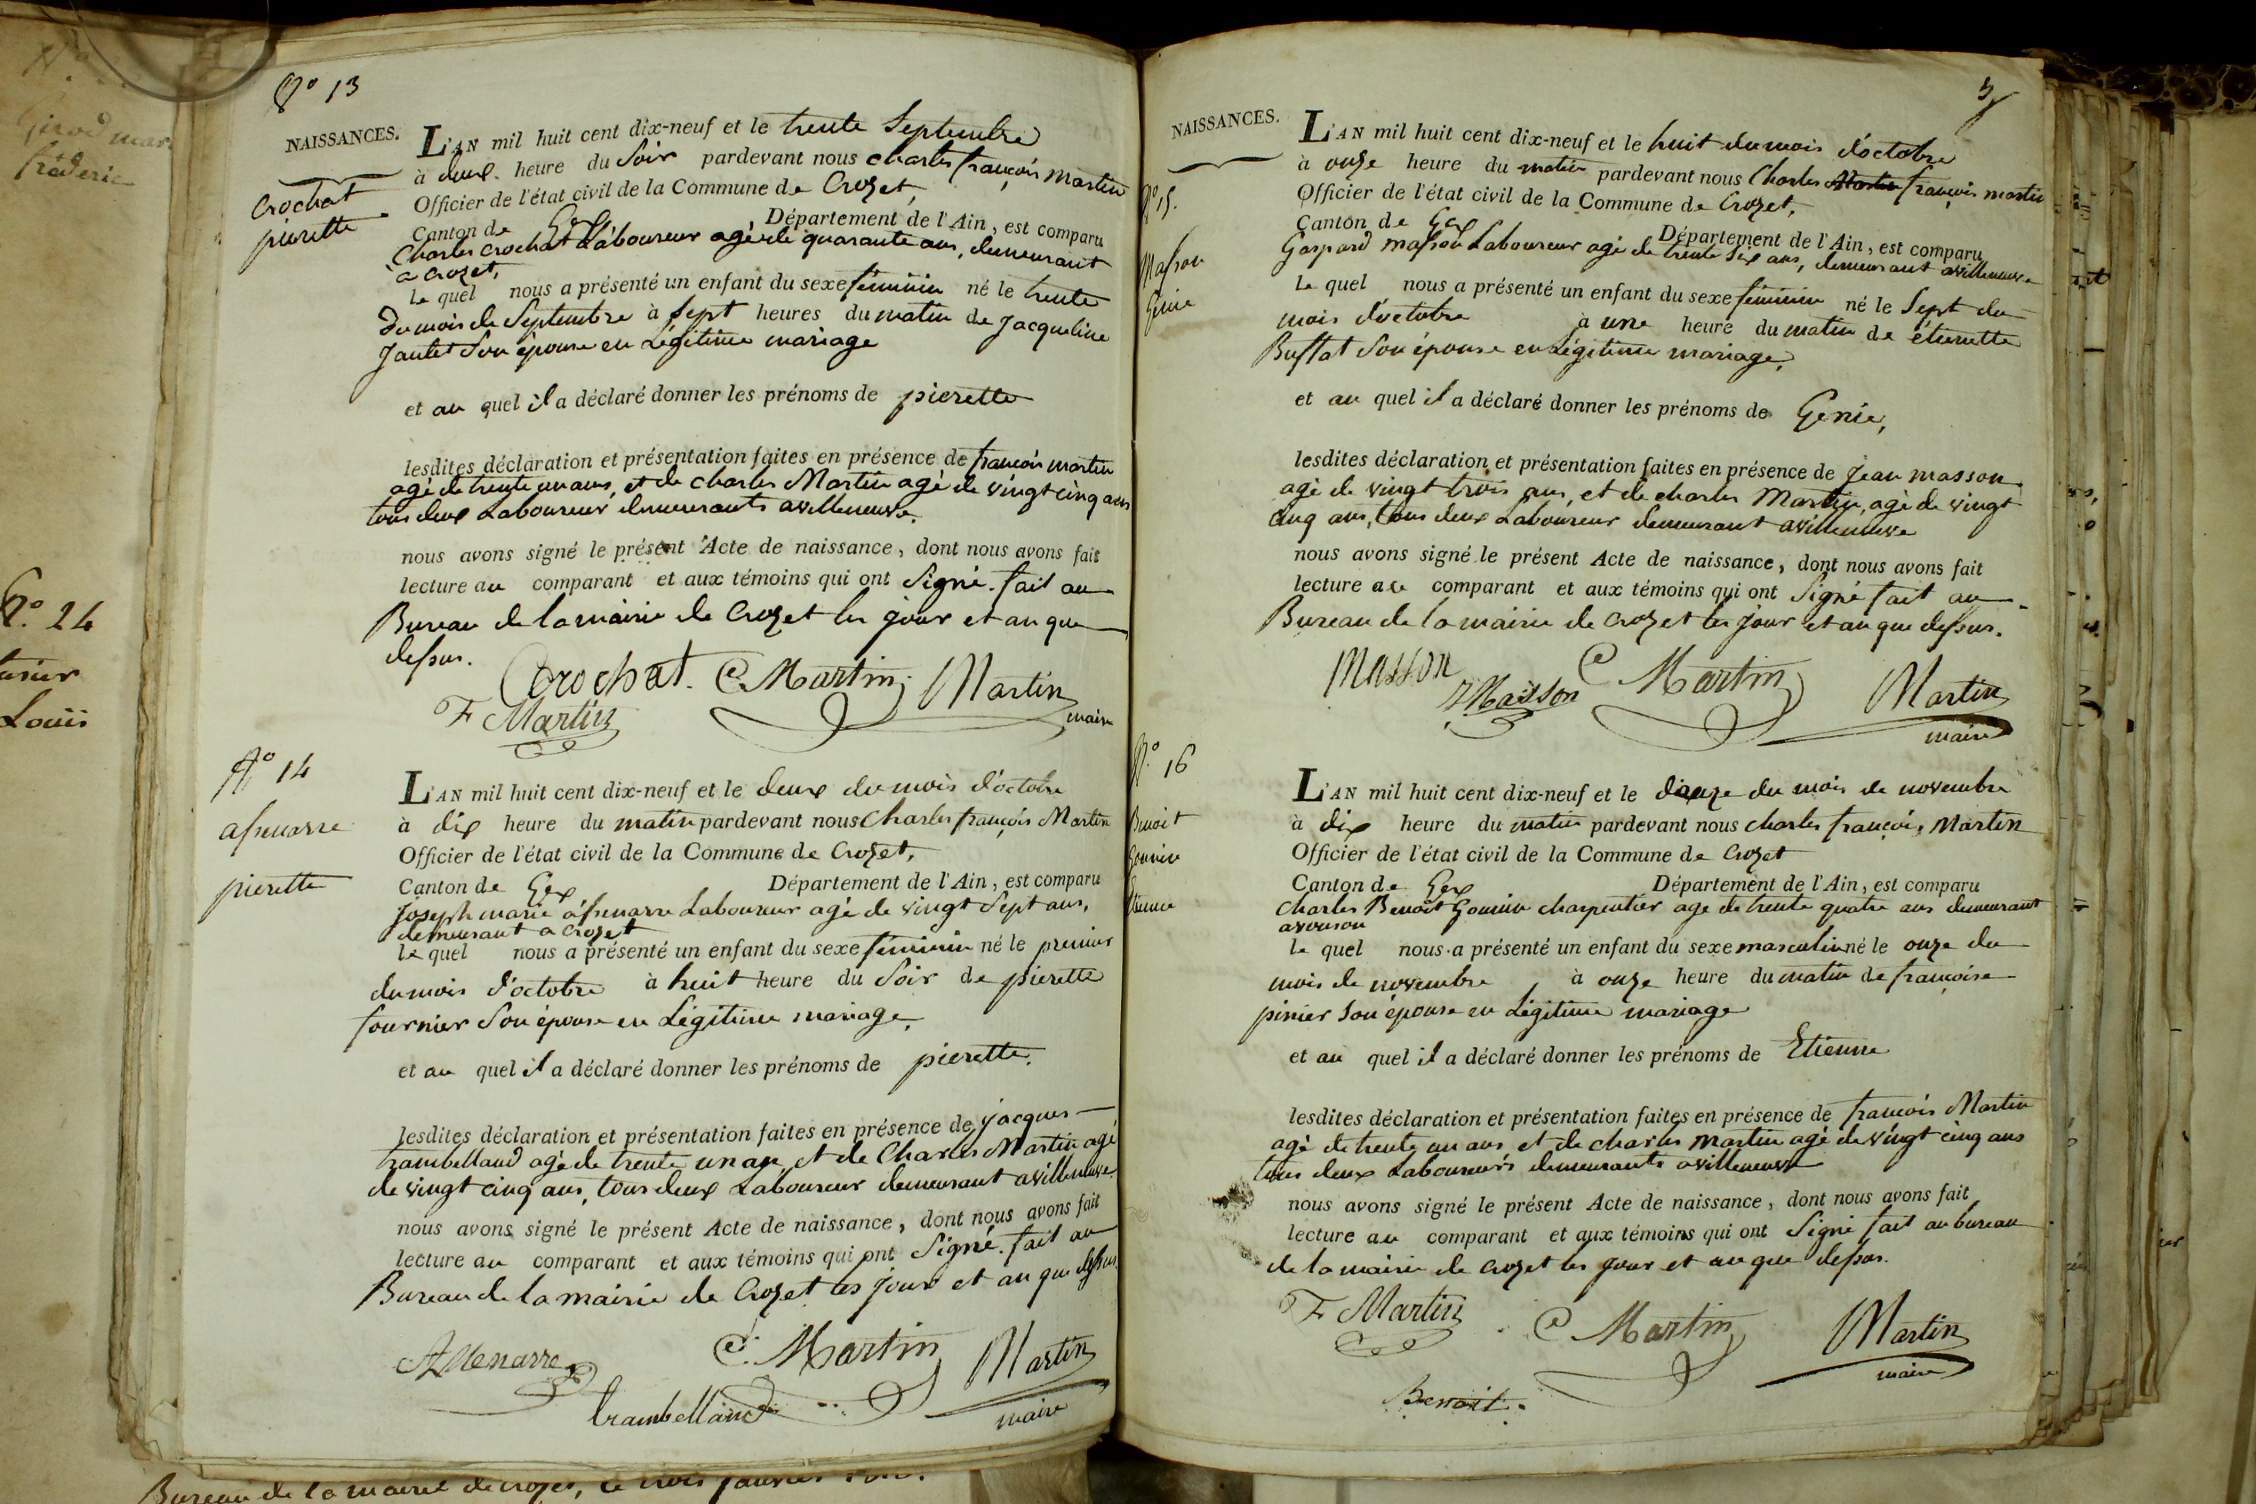 N° 13
NAISSANCES.
Crochat
pierette
L'AN mil huit cent dix-neuf et le trente Septembre
à deux heure du Soir pardevant nous charles françois martin
Officier de l'état civil de la Commune de Crozet,
Canton de Gex Département de l'Ain, est comparu
Charles Crochat Laboureur agé de quarante ans, demeurant
a Crozet,
Le quel nous a présenté un enfant du sexe féminin né le trente
du mois de Septembre à Sept heures du matin de Jacqueline
Jantet Son épouse en Légitime mariage
et au quel il a déclaré donner les prénoms de pierette
lesdites déclaration et présentation faites en présence de françois martin
agé de trente un ans, et de charles Martin agé de vingt cinq ans
tous deux Laboureur demeurants a villeneuve.
nous avons signé le présent Acte de naissance, dont nous avons fait
lecture au comparant et aux témoins qui ont Signé. fait au
Bureau de la mairie de Crozet les jour et an que
dessus.
Crochat. C Martin Martin
F Martin maire
N° 14
assenarre
pierette
L'AN mil huit cent dix-neuf et le deux du mois d'octobre
à dix heure du matin pardevant nous Charles françois Martin
Officier de l'état civil de la Commune de Crozet,
Canton de Gex Département de l'Ain, est comparu
joseph marie assenarre Laboureur agé de vingt Sept ans,
demeurant a Crozet
Le quel nous a présenté un enfant du sexe féminin né le premier
du mois d'octobre à huit heure du Soir de pierette
fournier Son épouse en Légitime mariage,
et au quel il a déclaré donner les prénoms de pierette.
lesdites déclaration et présentation faites en présence de jacques
trambelland agé de trente un an et de Charles Martin agé
de vingt cinq ans, tous deux Laboureur demeurant a villeneuve.
nous avons signé le présent Acte de naissance, dont nous avons fait
lecture au comparant et aux témoins qui ont Signé. fait au
Bureau de la mairie de Crozet les jour et an que dessus
C. Martin Martin
trambelland maire
NAISSANCES.
N° 15.
Masson
Génie
L'AN mil huit cent dix-neuf et le huit du mois d'octobre
à onze heure du matin pardevant nous Charles Martin françois martin
Officier de l'état civil de la Commune de Crozet,
Canton de Gex Département de l'Ain, est comparu
Gaspard masson Laboureur agé de trente Six ans, demeurant a villeneuve
Le quel nous a présenté un enfant du sexe féminin né le Sept du
mois d'octobre à une heure du matin de étienette
Buffat Son épouse en Légitime mariage,
et au quel il a déclaré donner les prénoms de Génie,
lesdites déclaration et présentation faites en présence de Jean masson
agé de vingt trois ans, et de charles Martin, agé de vingt
cinq ans, tous deux Laboureur demeurant a villeneuve
nous avons signé le présent Acte de naissance, dont nous avons fait
lecture au comparant et aux témoins qui ont Signé fait au
Bureau de la mairie de Crozet les jour et an que dessus.
Masson C Martin Martin
J Masson maire
N° 16
Benoit
Gonin
Etienne
L'AN mil huit cent dix-neuf et le douze du mois de novembre
à dix heure du matin pardevant nous charles françois Martin
Officier de l'état civil de la Commune de Crozet
Canton de Gex Département de l'Ain, est comparu
Charles Benoit Gonin charpentier agé de trente quatre ans demeurant
Le quel nous a présenté un enfant du sexe masculin né le onze du
mois de novembre à onze heure du matin de françoise
pinier Son épouse en Légitime mariage
et au quel il a déclaré donner les prénoms de Etienne
lesdites déclaration et présentation faites en présence de françois Martin
agé de trente un ans et de charles martin agé de vingt cinq ans
tous deux Laboureurs demeurants a villeneuve
nous avons signé le présent Acte de naissance, dont nous avons fait
lecture au comparant et aux témoins qui ont Signé fait au bureau
de la mairie de Crozet les jour et an que dessus.
F Martin C Martin Martin
maire
Benoit.
N°. 24
Louis